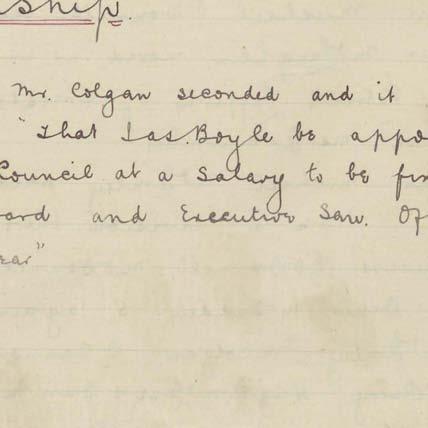 ship.
Mr. Colgan seconded and it
"That Jas. Boyle be appo
Council at a Salary to be fix
ard and Executive San. Of
ear"